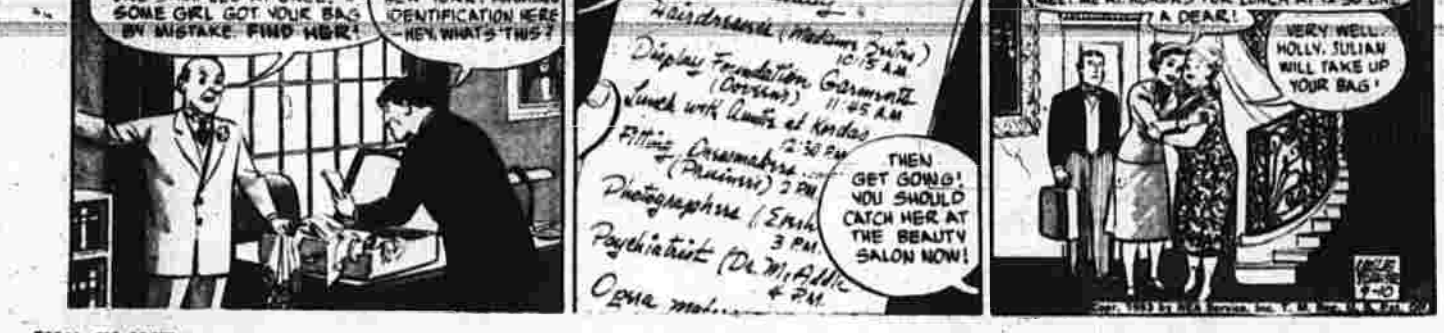 SOME GIRL GOT YOUR BAG
BY MISTAKE. FIND HER!
IDENTIFICATION HERE
-HEY, WHAT'S THIS?
Hairdresser (Madame
10:15 A.M.
Display Foundation Garments
11:45 A.M.
Lunch with Aunts at Kordas
12:30 P.M.
Fitting Dressmakers
2 PM
Photographers
3 PM.
Psychiatrist (Dr. Mc Addle
4 P.M.
Opera
THEN
GET GOING!
YOU SHOULD
CATCH HER AT
THE BEAUTY
SALON NOW!
A DEAR!
VERY WELL,
HOLLY. JULIAN
WILL TAKE UP
YOUR BAG!
9-10
Copr. 1953 by NEA Service, Inc. T. M. Reg. U. S. Pat. Off.